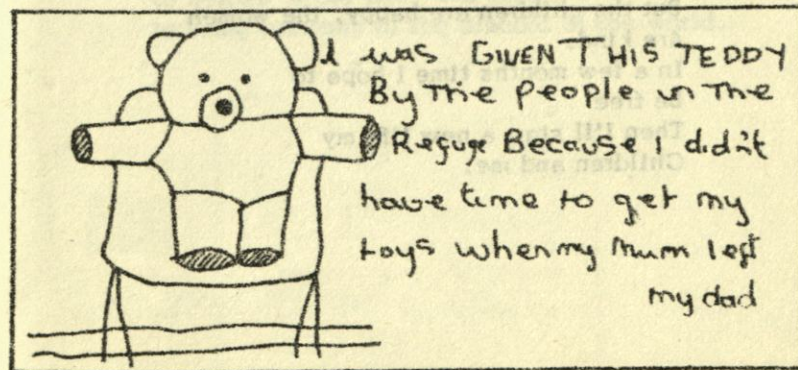 I was GIVEN THIS TEDDY
By The People in The
Refuge Because I didn't
have time to get my
toys when my Mum left
my dad